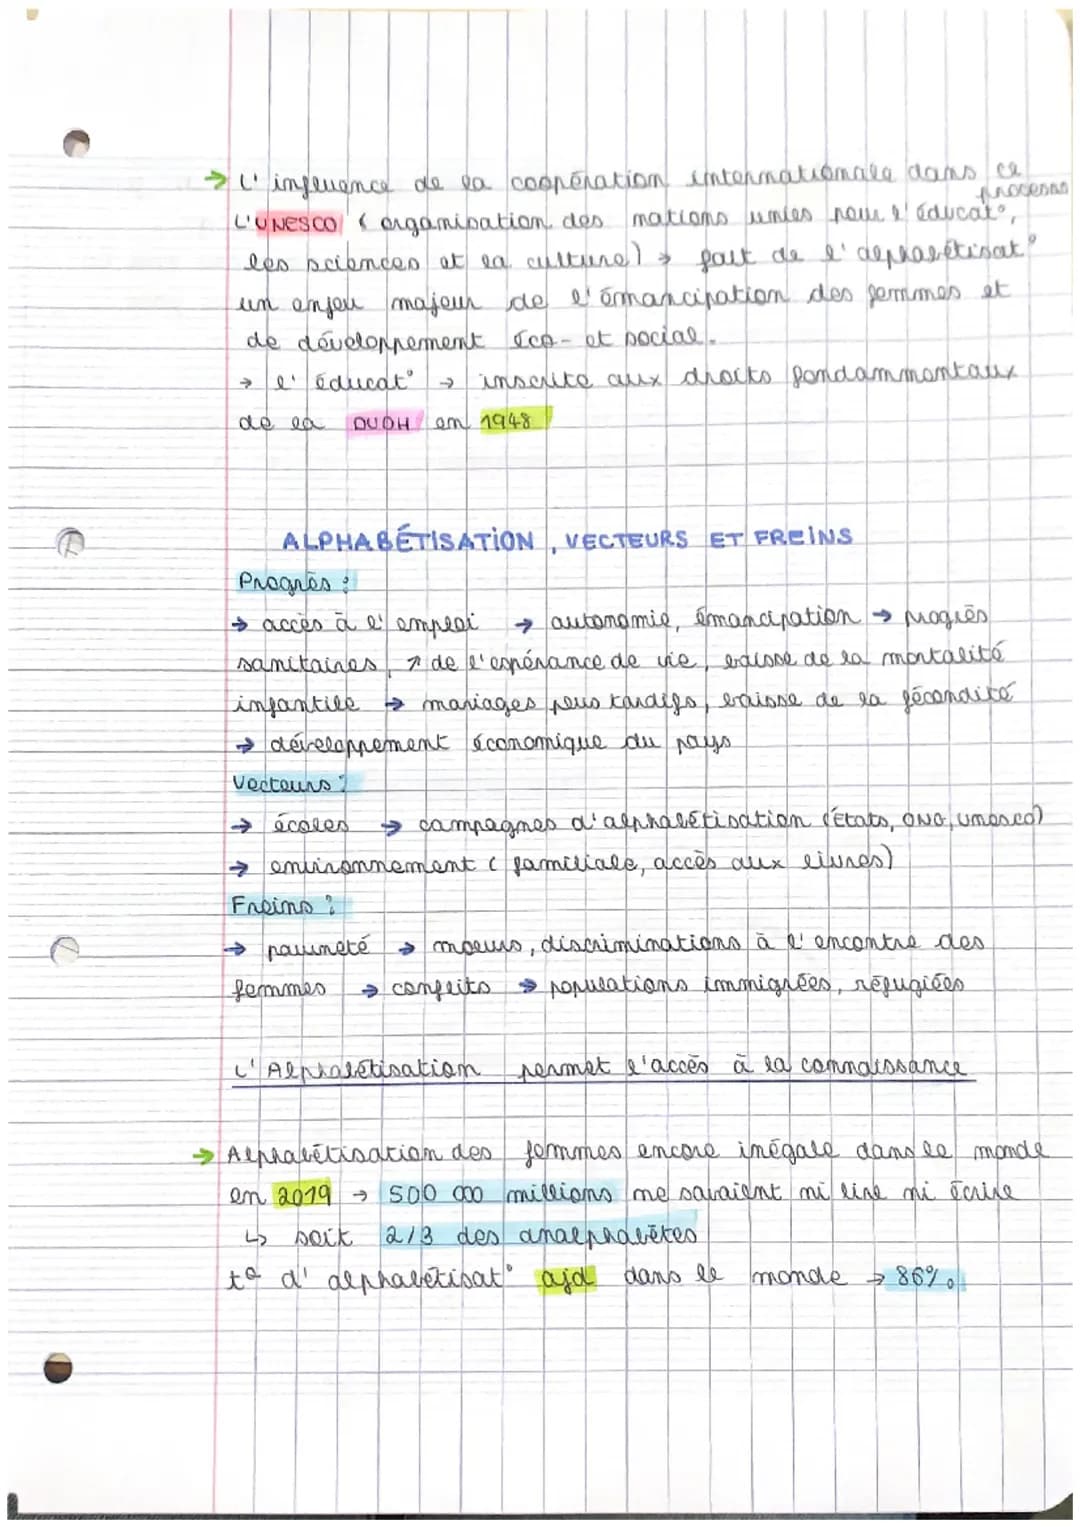 → L'influence de la coopération internationale dans ce processus
L'UNESCO (organisation des nations unies pour l'éducat°,
les sciences et la culture) → fait de l'alphabétisat°
un enjeu majeur de l'émancipation des femmes et
de développement éco- et social.
→ l'éducat° → inscrite aux droits fondammentaux
de la DUDH en 1948
ALPHABÉTISATION, VECTEURS ET FREINS
Progrès :
→ accès à l'emploi → autonomie, émancipation → progrès
sanitaires, ↗ de l'espérance de vie, baisse de la mortalité
infantile → mariages plus tardifs, baisse de la fécondité
→ développement économique du pays
Vecteurs :
→ écoles → campagnes d'alphabétisation (États, ONG, unesco)
→ environnement (familiale, accès aux livres)
Freins :
→ pauvreté → moeurs, discriminations à l'encontre des
femmes → conflits → populations immigrées, réfugiées
L'Alphabétisation permet l'accès à la connaissance
→ Alphabétisation des femmes encore inégale dans le monde
en 2019 → 500 000 millions ne savaient ni lire ni écrire
↳ soit 2/3 des analphabètes
tº d'alphabétisat° ajd dans le monde → 86%